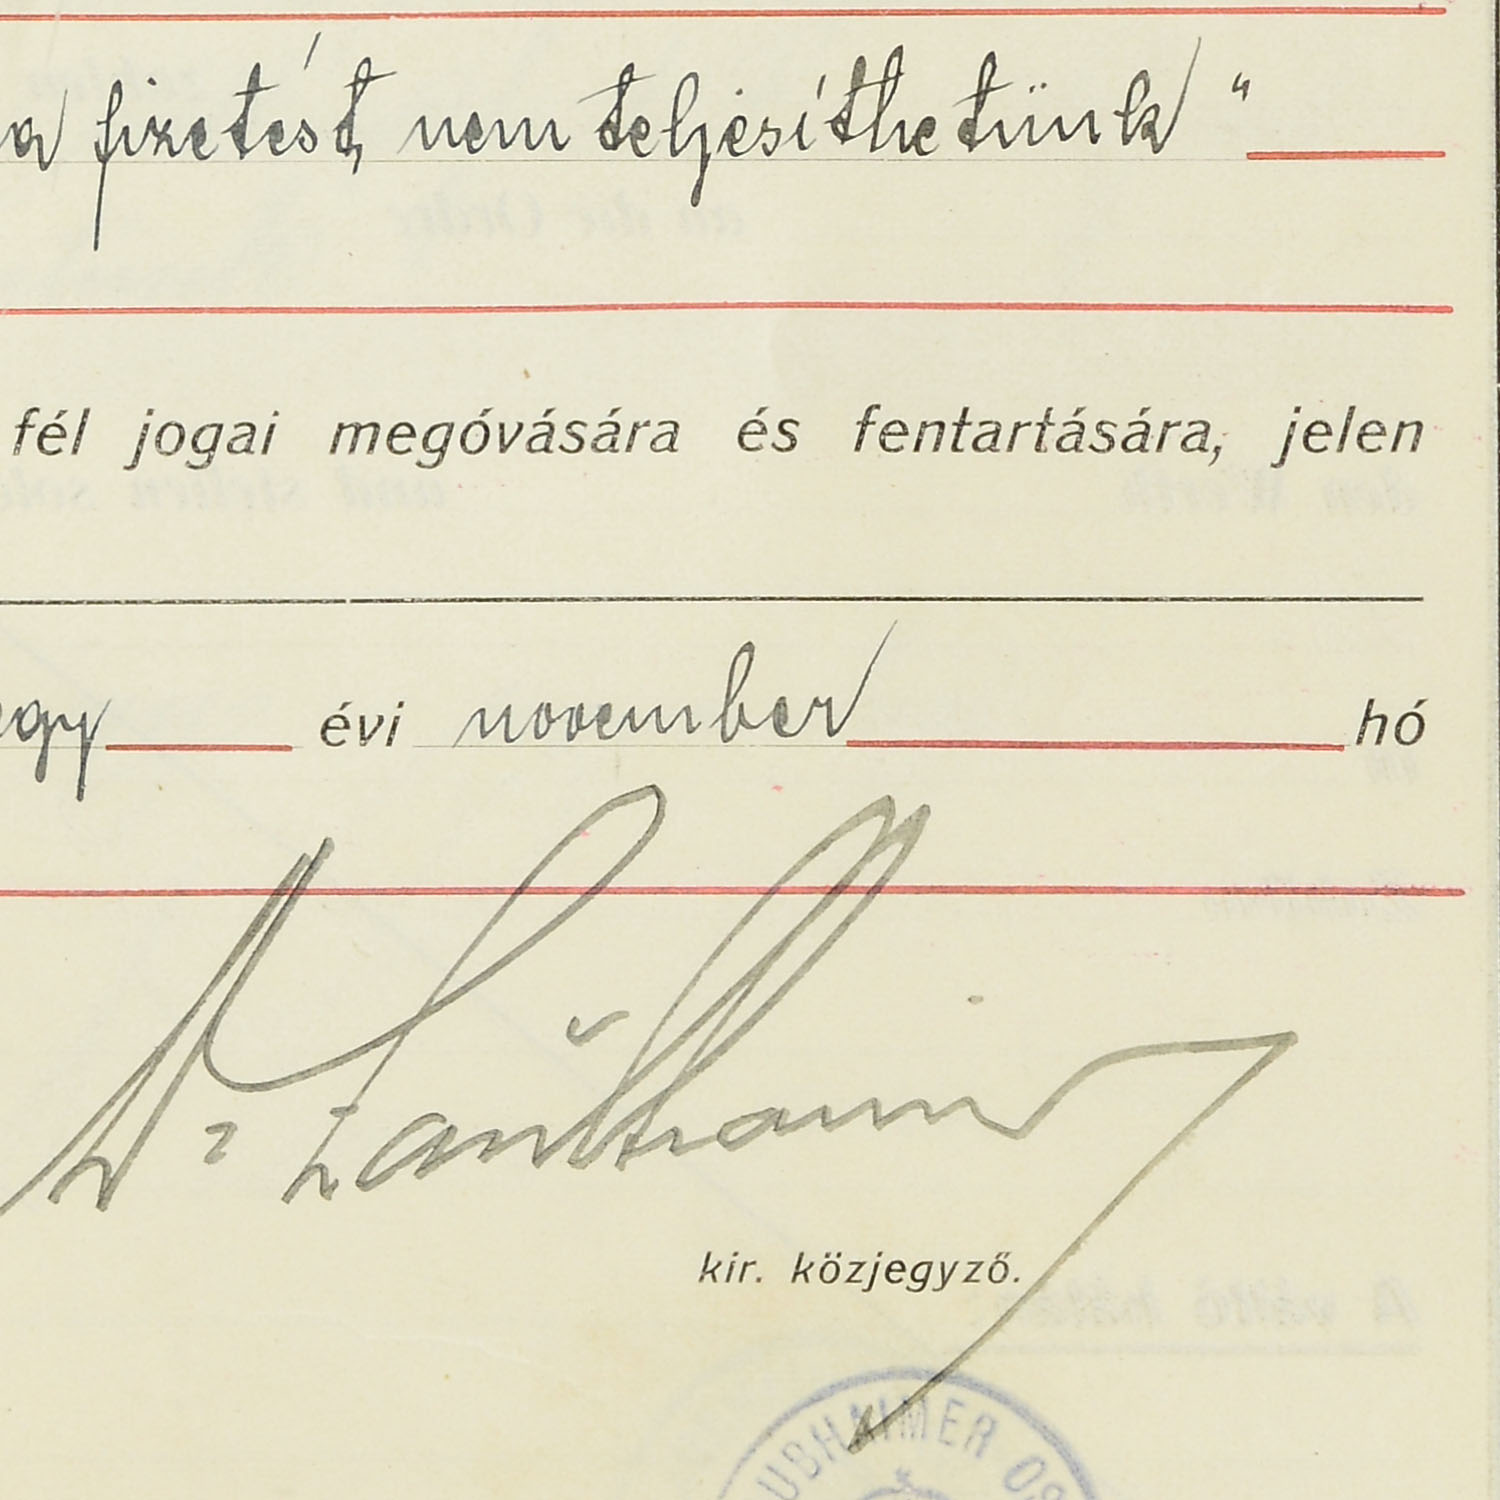 a fizetést, nem teljesíthetünk"
fél jogai megóvására és fentartására, jelen
egy évi november hó
Dr Laubhaimer
kir. közjegyző.
UBHAIMER OS